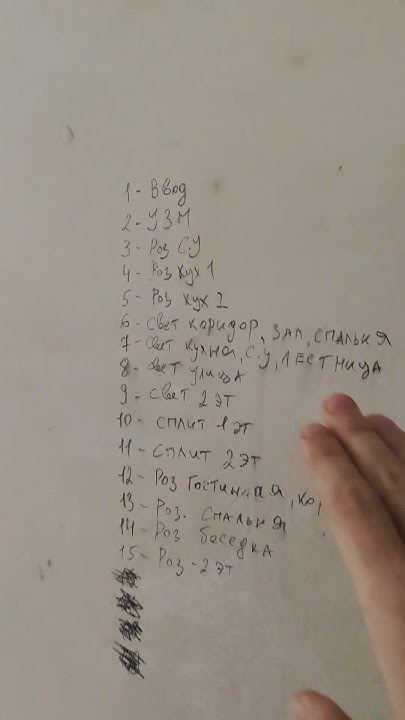 1 - Ввод
2 - УЗМ
3 - Роз С.У
4 - Роз кух 1
5 - Роз кух 2
6 - Свет коридор, зал, спальня
7 - Свет кухня, С.У, лестница
8 - Свет улица
9 - Свет 2 эт
10 - Сплит 1 эт
11 - Сплит 2 эт
12 - Роз Гостинная, ко
13 - Роз. спальня
14 - Роз беседка
15 - Роз - 2 эт